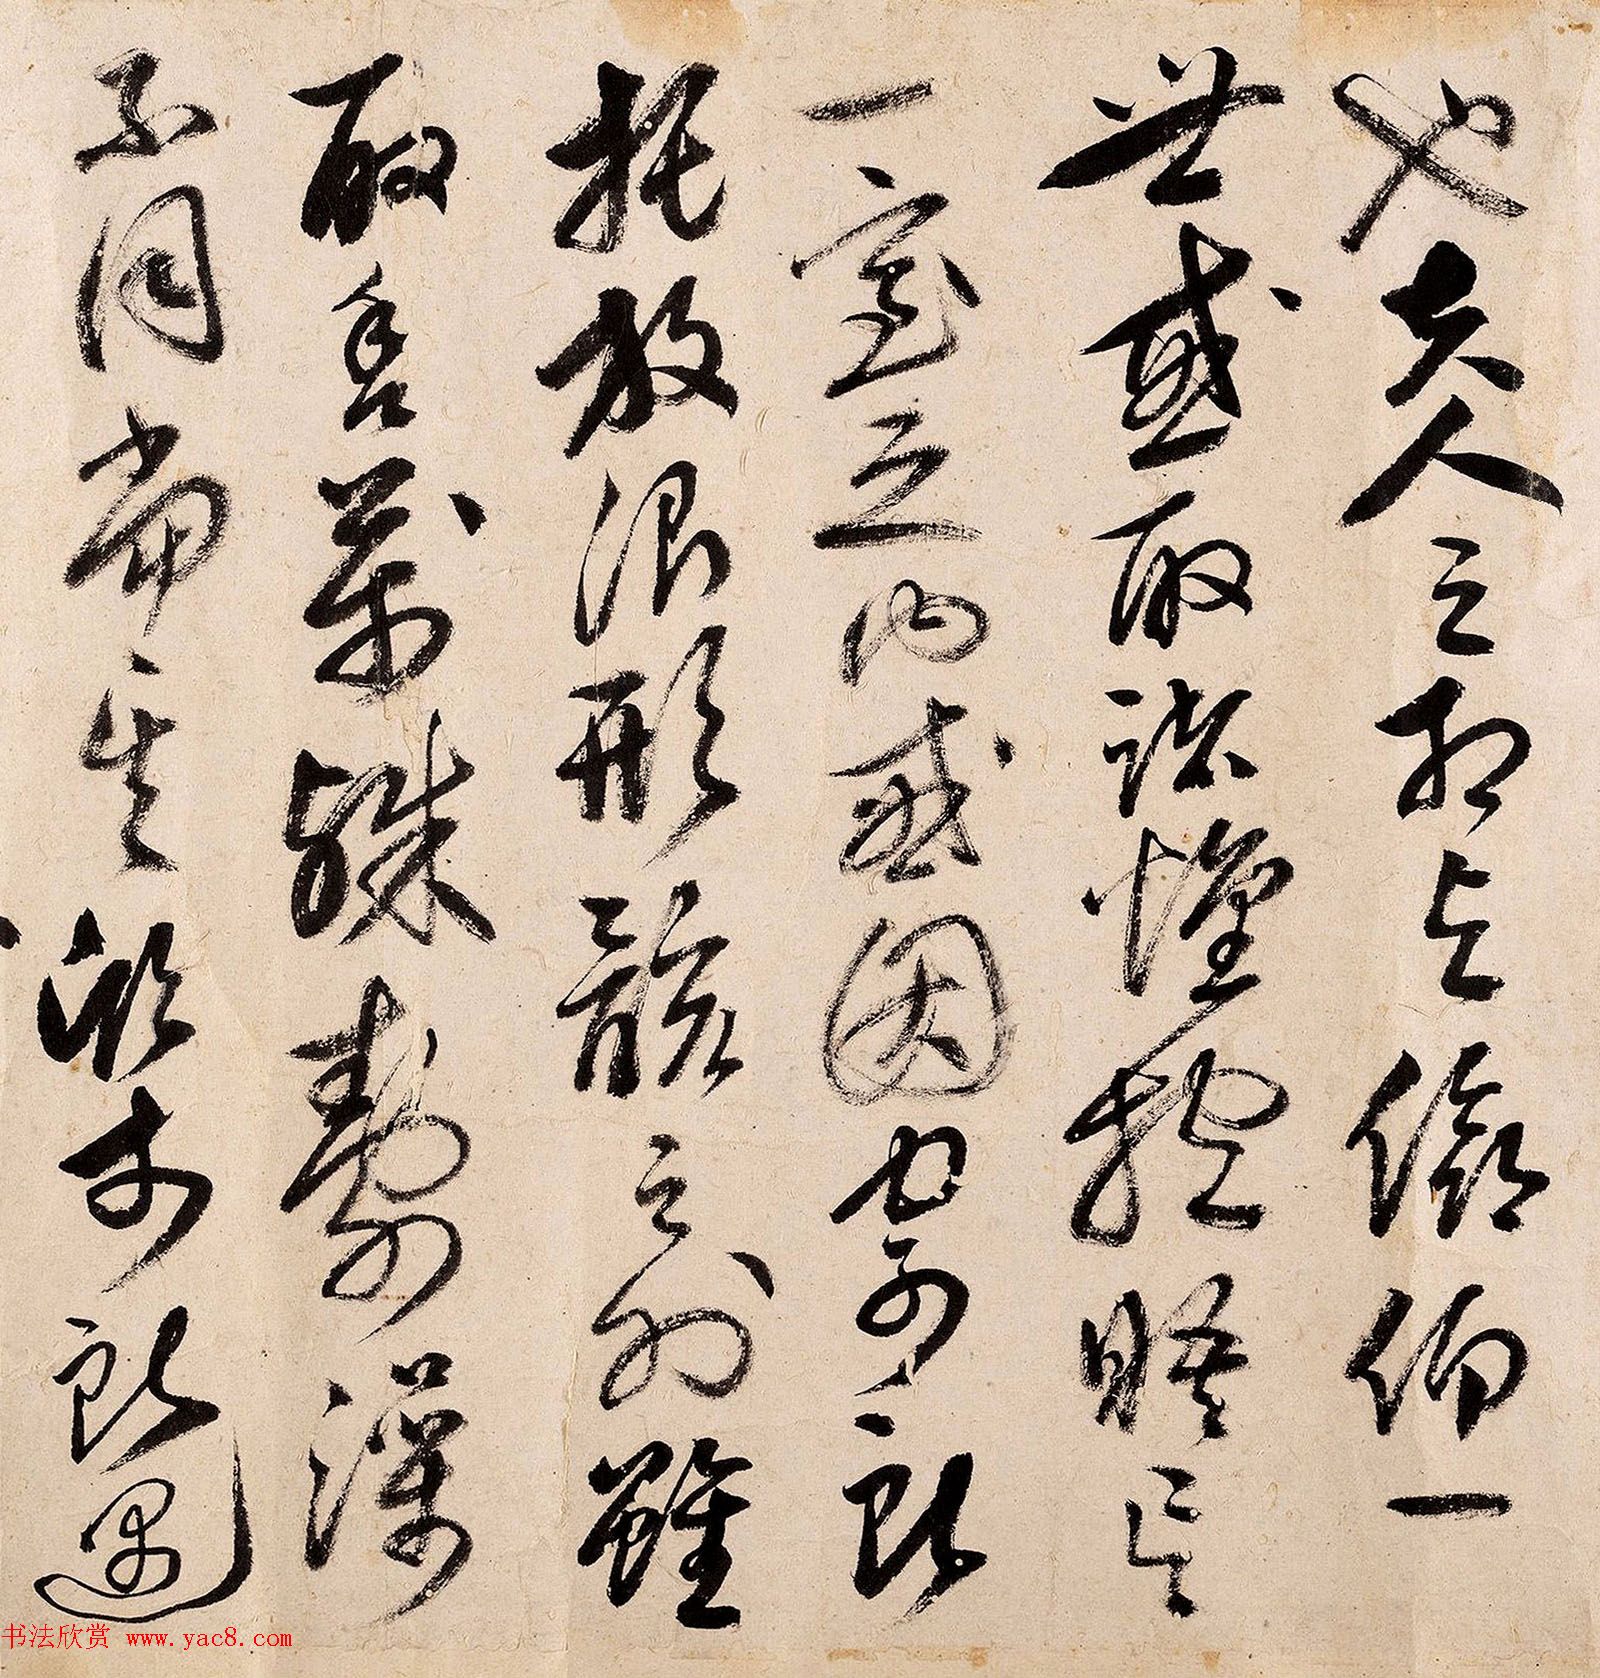 也夫人之相與俯仰一
世或取諸懷抱晤言
一室之內或因寄所
托放浪形骸之外雖
取舍萬殊靜躁
不同當其欣於所遇
书法欣赏 www.yac8.com